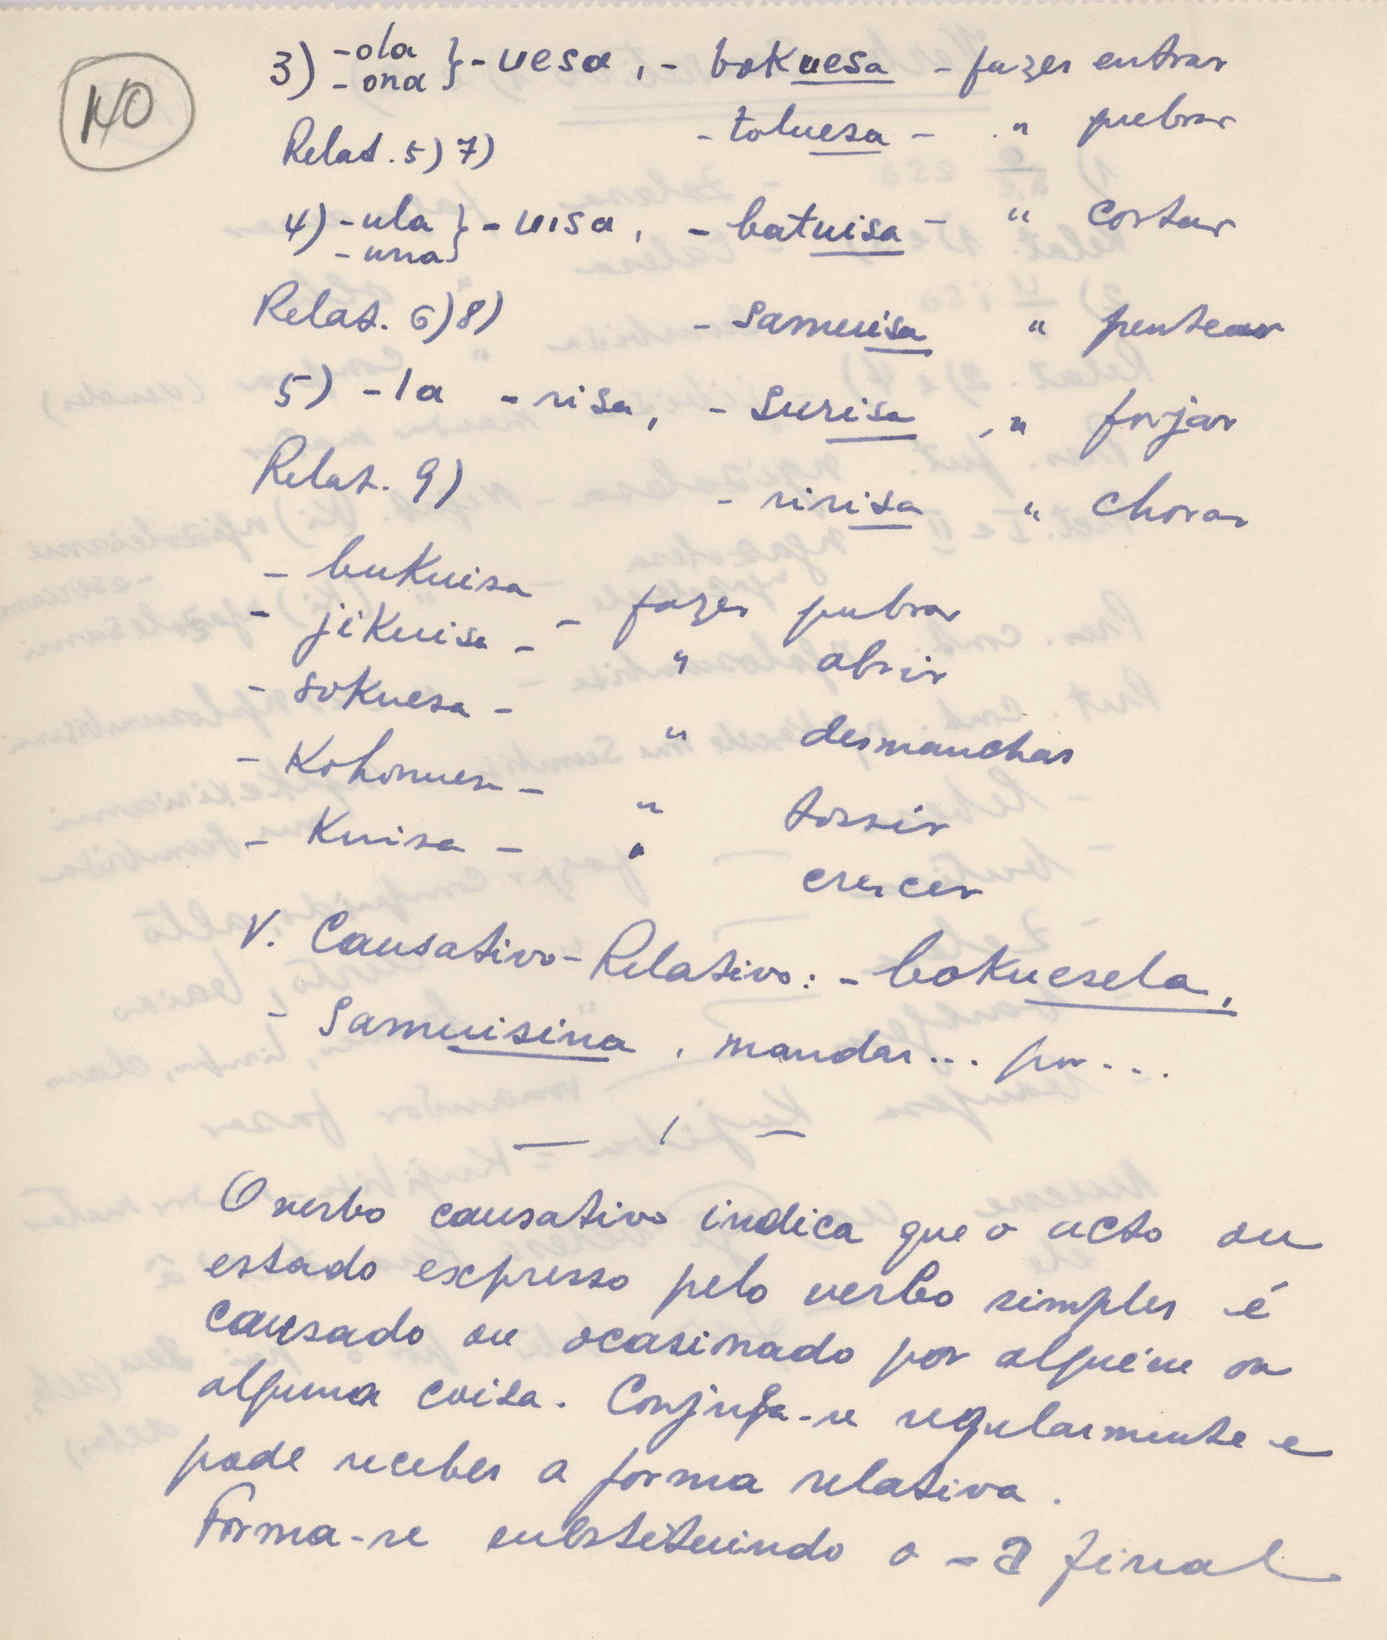 140
3) -ola
-ona } -uesa, - bokuesa - fazer entrar
Relat. 5) 7) - toluesa - " quebrar
4) -ula
-una } -uisa, - batuisa - " cortar
Relat. 6) 8) - samuisa " pentear
5) -la - risa, - surisa " forjar
Relat. 9) - ririsa " chorar
- bukuisa - fazer quebrar
- jikuisa - " abrir
- sokuesa - " desmanchar
- Kohonuesa - " tossir
- Kuisa - " crescer
V. Causativo-Relativo: - bokuesela,
- Samuisina, mandar... por...
— / —
O verbo causativo indica que o acto ou
estado expresso pelo verbo simples é
causado ou ocasinado por alguém ou
alguma coisa. Conjuga-se regularmente e
pode receber a forma relativa.
Forma-se substituindo o -a final